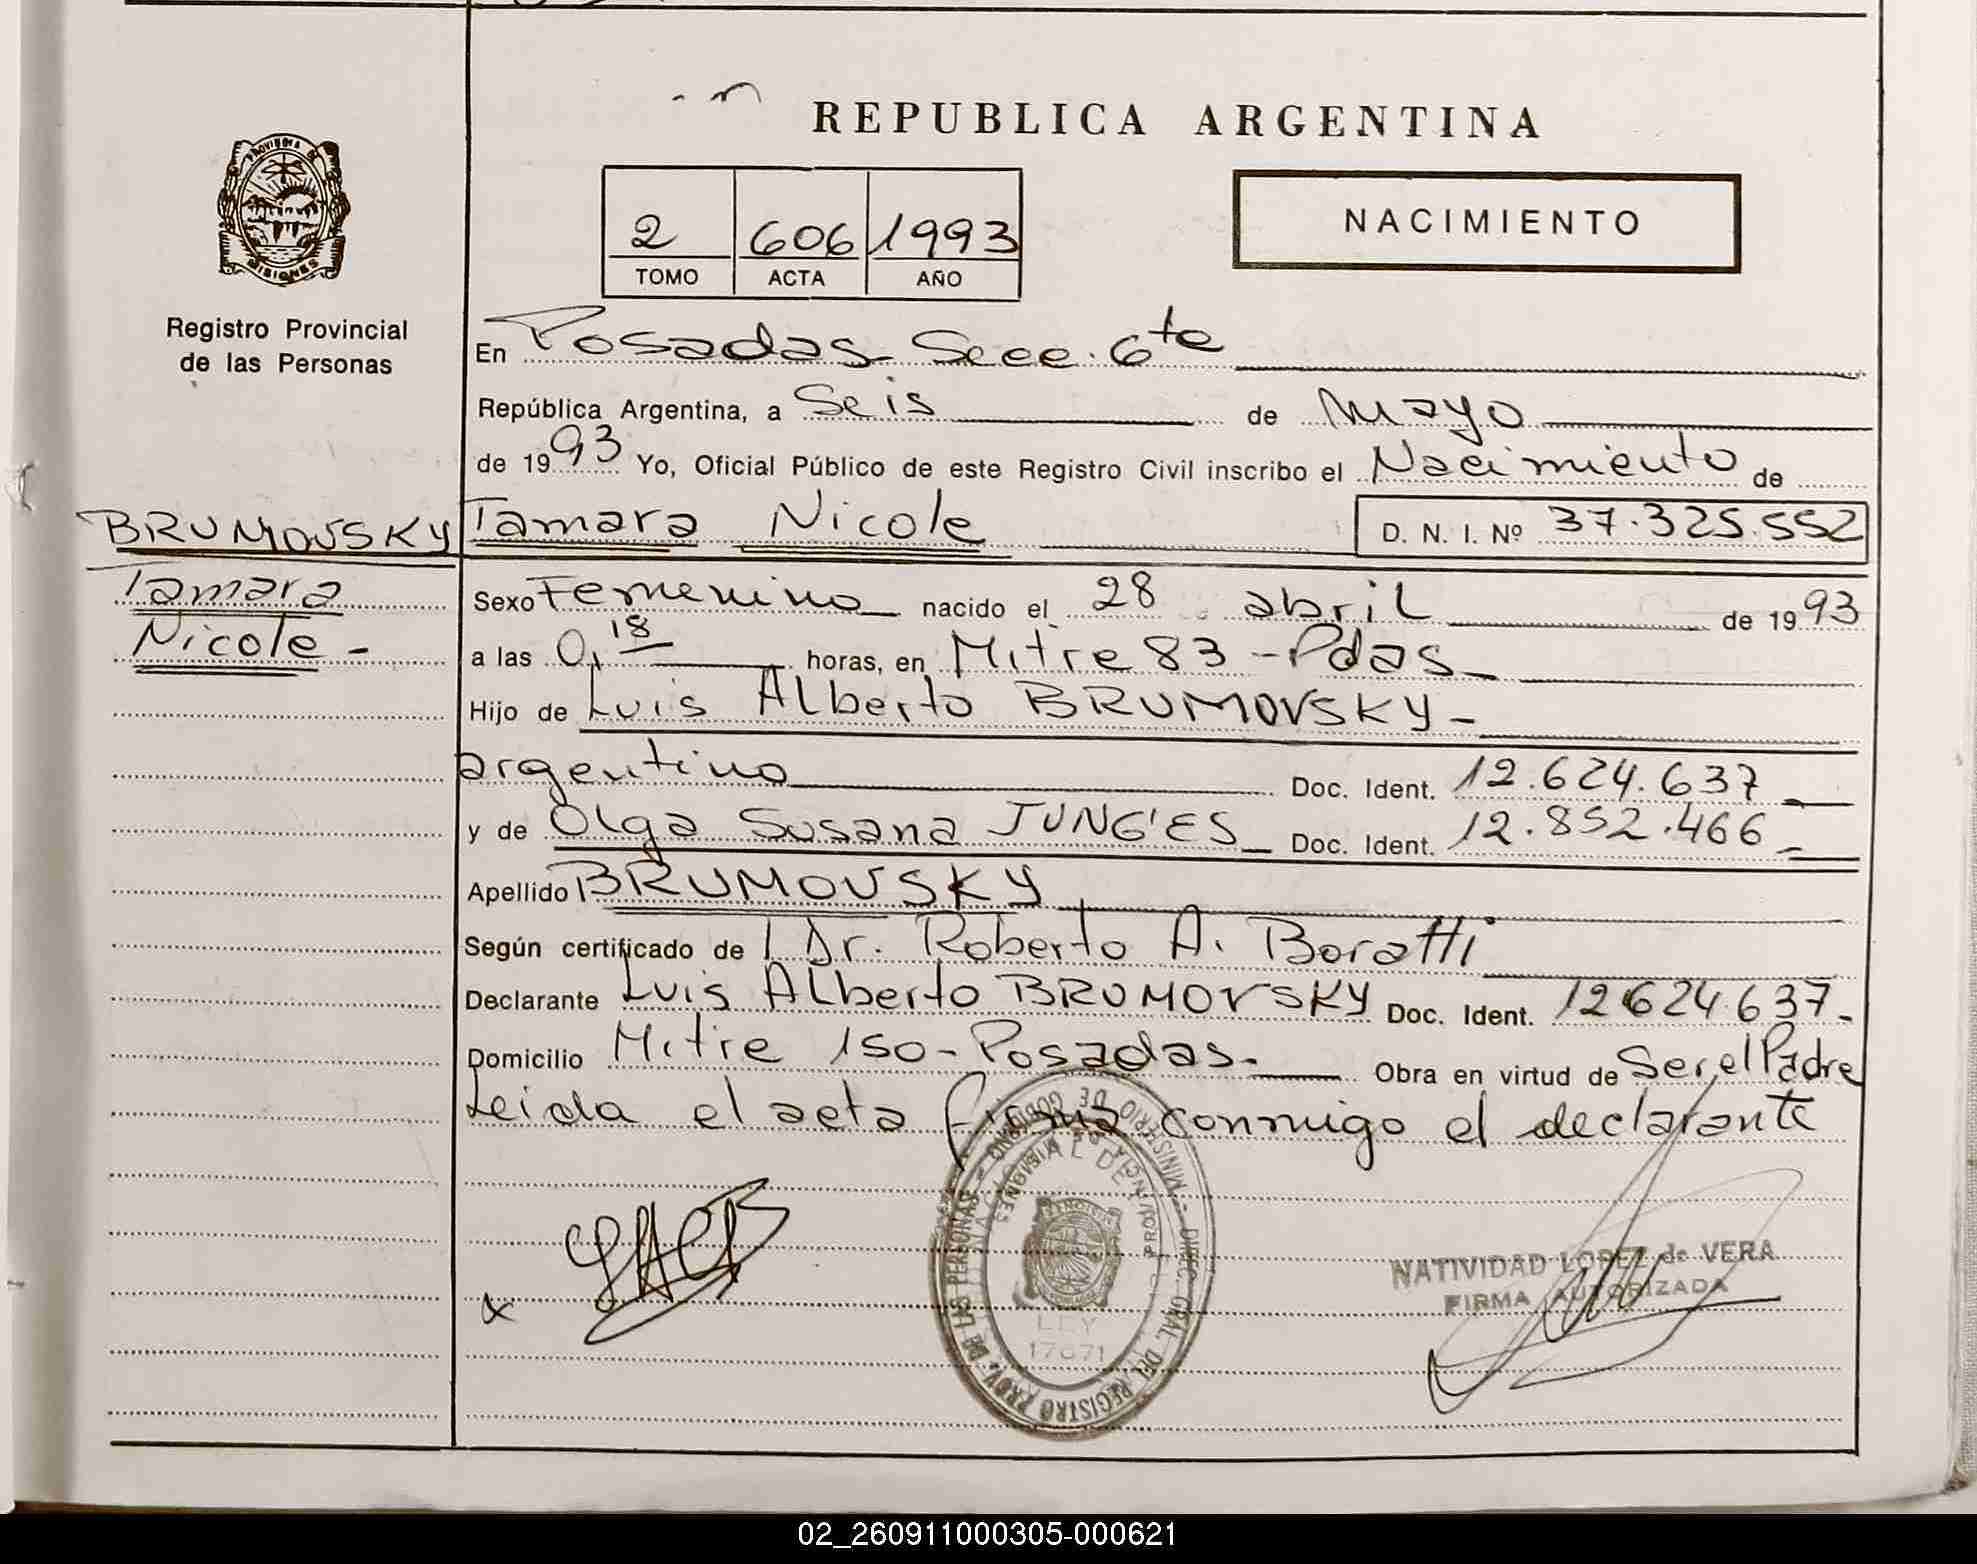 REPUBLICA ARGENTINA
PROVINCIA DE
MISIONES
Registro Provincial
de las Personas
2 606 1993
TOMO ACTA AÑO
NACIMIENTO
En Posadas Secc. 6ta
República Argentina, a Seis de Mayo
de 1993 Yo, Oficial Público de este Registro Civil inscribo el Nacimiento de
BRUMOVSKY Tamara Nicole D. N. I. Nº 37.325.552
Tamara
Nicole -
Sexo Femenino nacido el 28 abril de 1993
a las 0,18 horas, en Mitre 83 - Pdas
Hijo de Luis Alberto BRUMOVSKY -
argentino Doc. Ident. 12.624.637
y de Olga Susana JUNG'ES Doc. Ident. 12.852.466
Apellido BRUMOVSKY
Según certificado de Dr. Roberto A. Boratti
Declarante Luis Alberto BRUMOVSKY Doc. Ident. 12624.637 -
Domicilio Mitre 150 - Posadas - Obra en virtud de Ser el Padre
Leida el acta firma conmigo el declarante
MINISTERIO DE GOBIERNO - DIREC. GRAL. DEL REGISTRO PROV. DE LAS PERSONAS
MISIONES
LEY
17671
x
NATIVIDAD LOPEZ de VERA
FIRMA AUTORIZADA
02_260911000305-000621